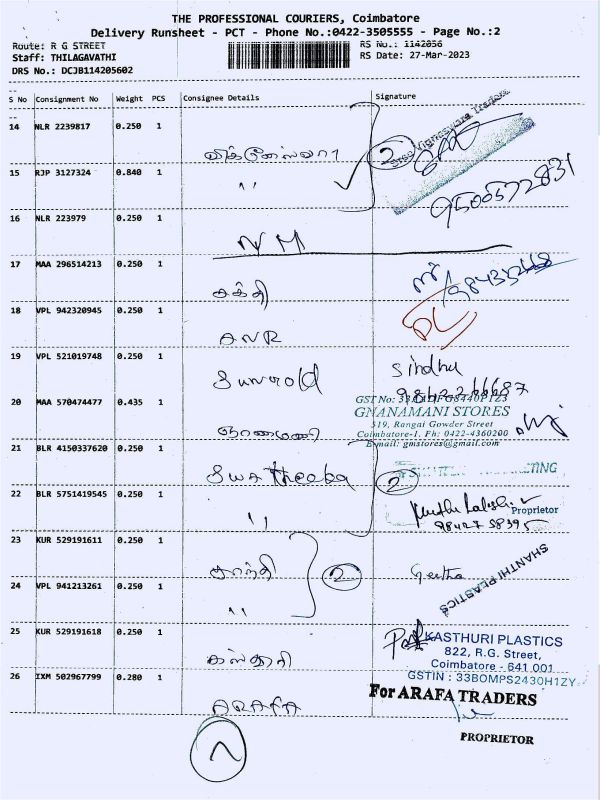 THE PROFESSIONAL COURIERS, Coimbatore
Delivery Runsheet - PCT - Phone No.:0422-3505555 - Page No.:2
Route: R G STREET
Staff: THILAGAVATHI
DRS No.: DCJB114205602
RS No.: 1142056
RS Date: 27-Mar-2023
S No Consignment No Weight PCS Consignee Details Signature
14 NLR 2239817 0.250 1
விக்னேஸ்வரா 2
Sree Vigneswara Traders
15 RJP 3127324 0.840 1
" 9500572831
16 NLR 223979 0.250 1
NM
17 MAA 296514213 0.250 1
சக்தி
18 VPL 942320945 0.250 1
ANR
19 VPL 521019748 0.250 1
Sunrold Sindhu
20 MAA 570474477 0.435 1
GNANAMANI STORES
519, Rangai Gowder Street
Coimbatore-1. Ph: 0422-4360200
E-mail: gmstores@gmail.com
ஞானமணி
21 BLR 4150337620 0.250 1
2
22 BLR 5751419545 0.250 1
" Proprietor
98427 58395
23 KUR 529191611 0.250 1
சாந்தி 2 Geetha
SHANTHI PLASTICS
24 VPL 941213261 0.250 1
"
25 KUR 529191618 0.250 1
கஸ்தூரி
KASTHURI PLASTICS
822, R.G. Street,
Coimbatore - 641 001
GSTIN : 33BOMPS2430H1ZY
26 IXM 502967799 0.280 1
ARAFA
For ARAFA TRADERS
PROPRIETOR